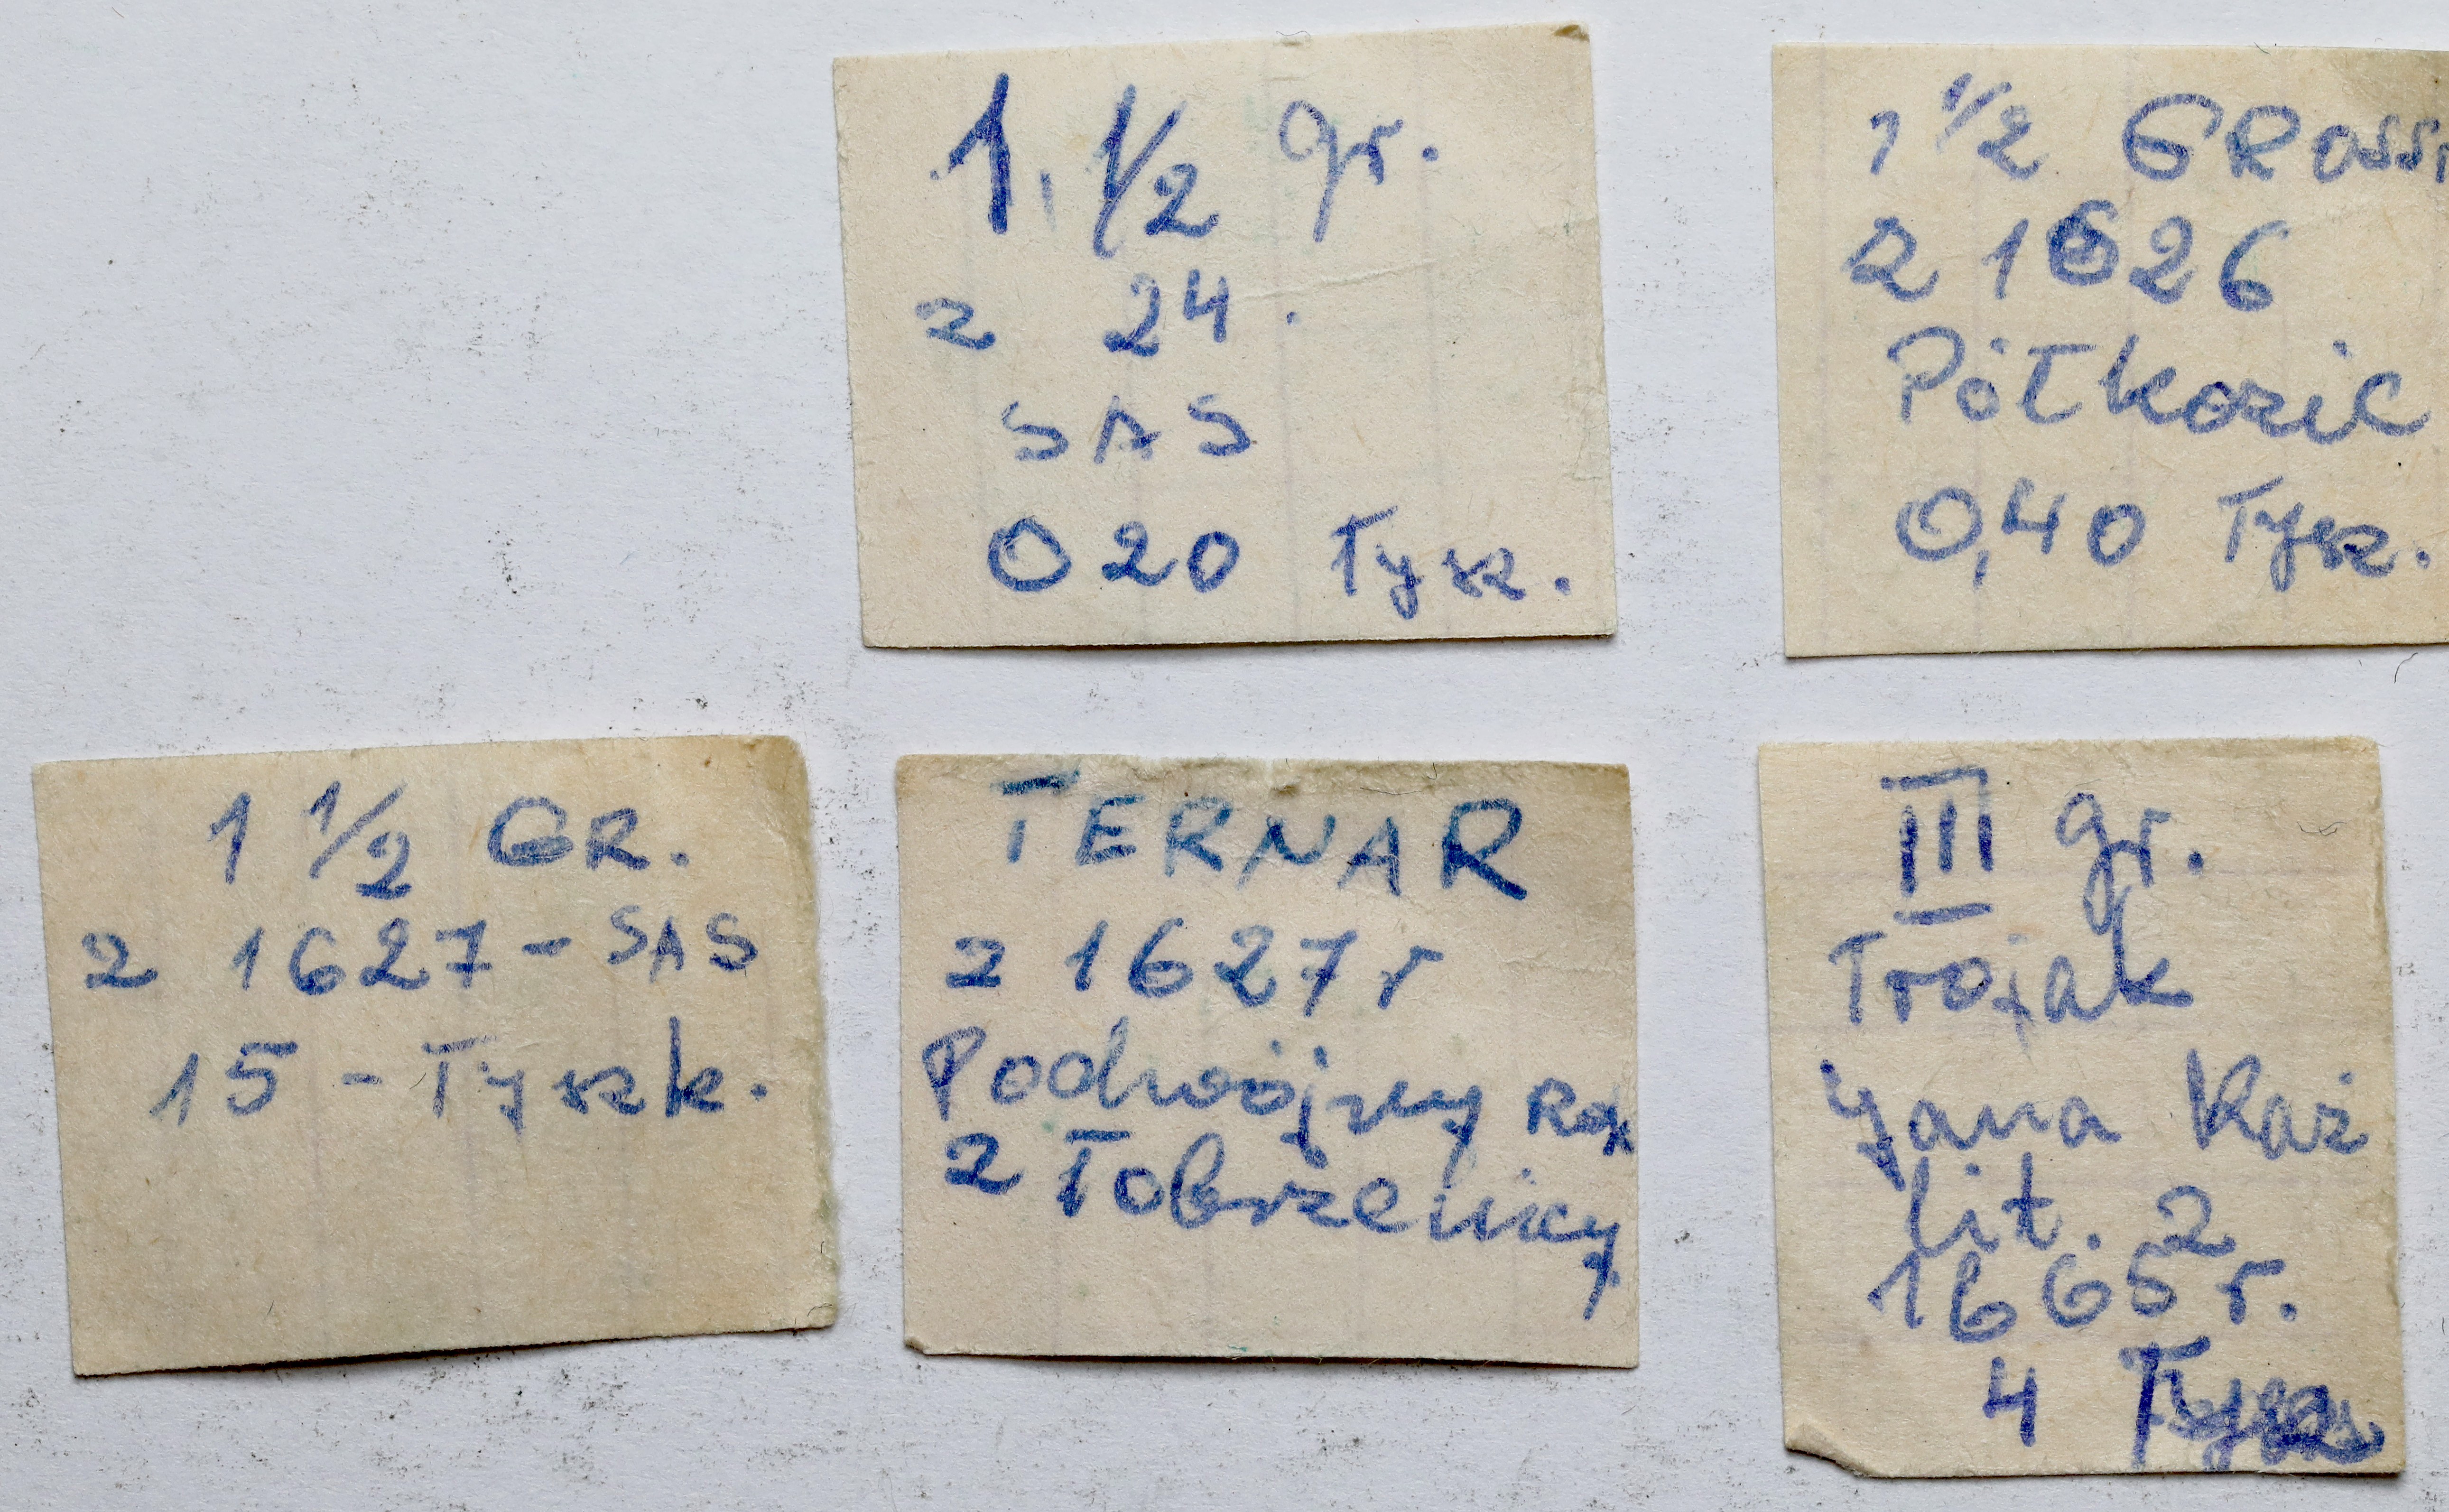 1, 1/2 gr.
z 24.
SAS
0 20 Tysz.
1 1/2 GROSS
z 1626
Półkozic
0,40 Tysz.
1 1/2 GR.
z 1627 - SAS
15 - Tyszk.
TERNAR
z 1627 r
Podwójny Rok
z Łobżenicy
III gr.
Trojak
Jana Kaź
lit. z
1665 r.
4 Tysz